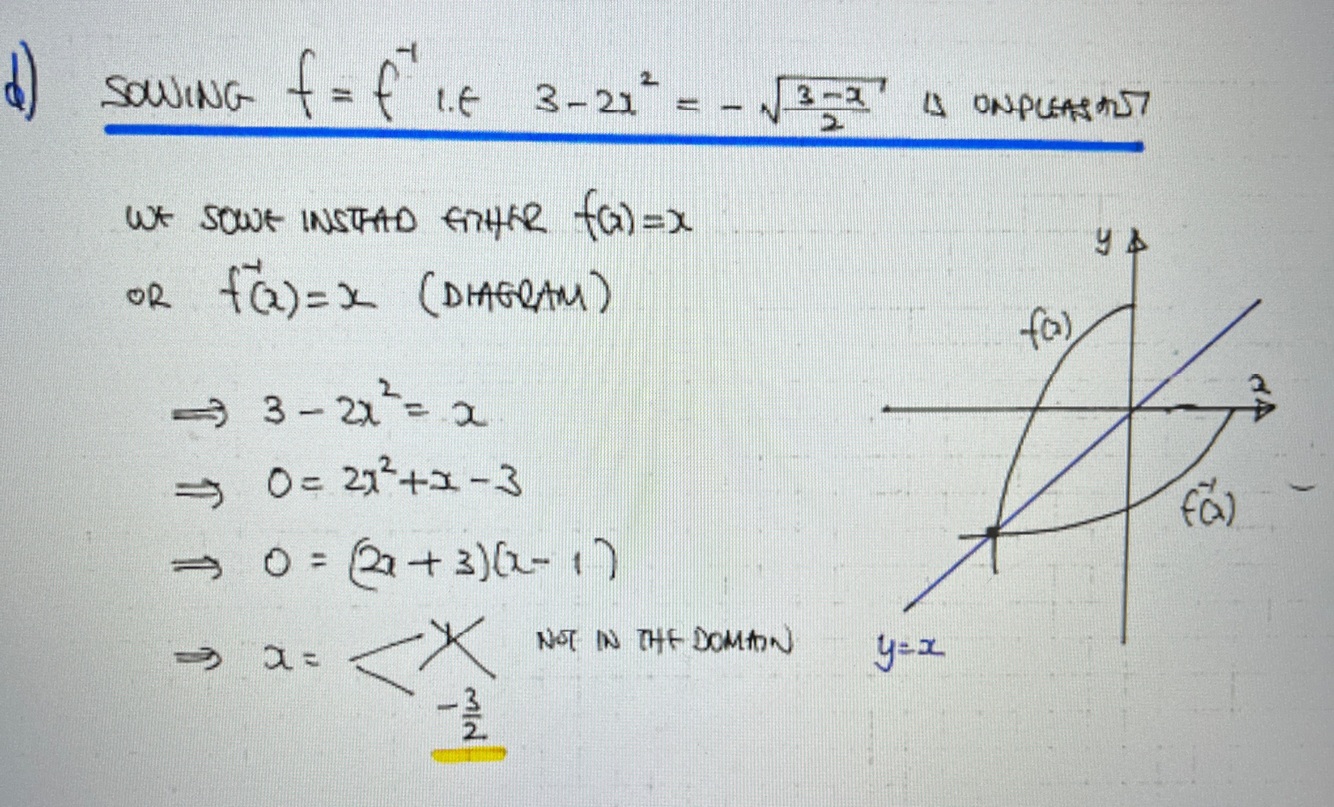 d) SOLVING f = f⁻¹ I.E 3 - 2x² = - √((3-x)/2) IS UNPLEASANT
WE SOLVE INSTEAD EITHER f(x)=x
OR f⁻¹(x)=x (DIAGRAM)
⟹ 3 - 2x² = x
⟹ 0 = 2x² + x - 3
⟹ 0 = (2x + 3)(x - 1)
⟹ x = < NOT IN THE DOMAIN
-3/2
y
f(x)
x
f⁻¹(x)
y=x